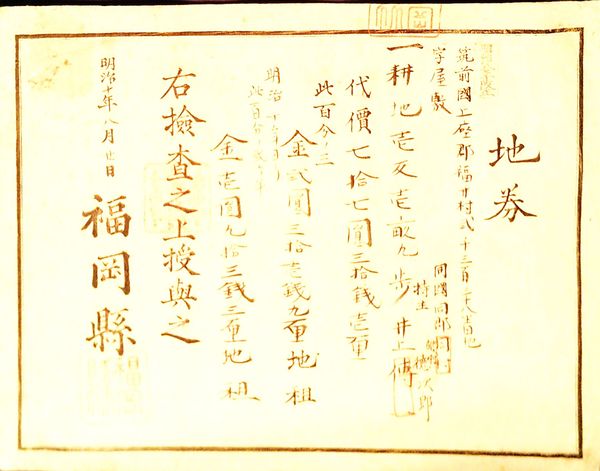 地券
筑前國上座郡福井村弐千三百
字屋敷
同國同郡同村
一耕地壱反壱畝九歩 持主 井上傳
德次郎
代價七拾七圓三拾銭壱厘
此百分ノ三
金弐圓三拾壱銭九厘 地租
明治十年ヨリ
此百分ノ二ヶ半
金壱圓九拾三銭三厘 地租
右撿査之上授與之
明治十年八月廿日
福岡縣